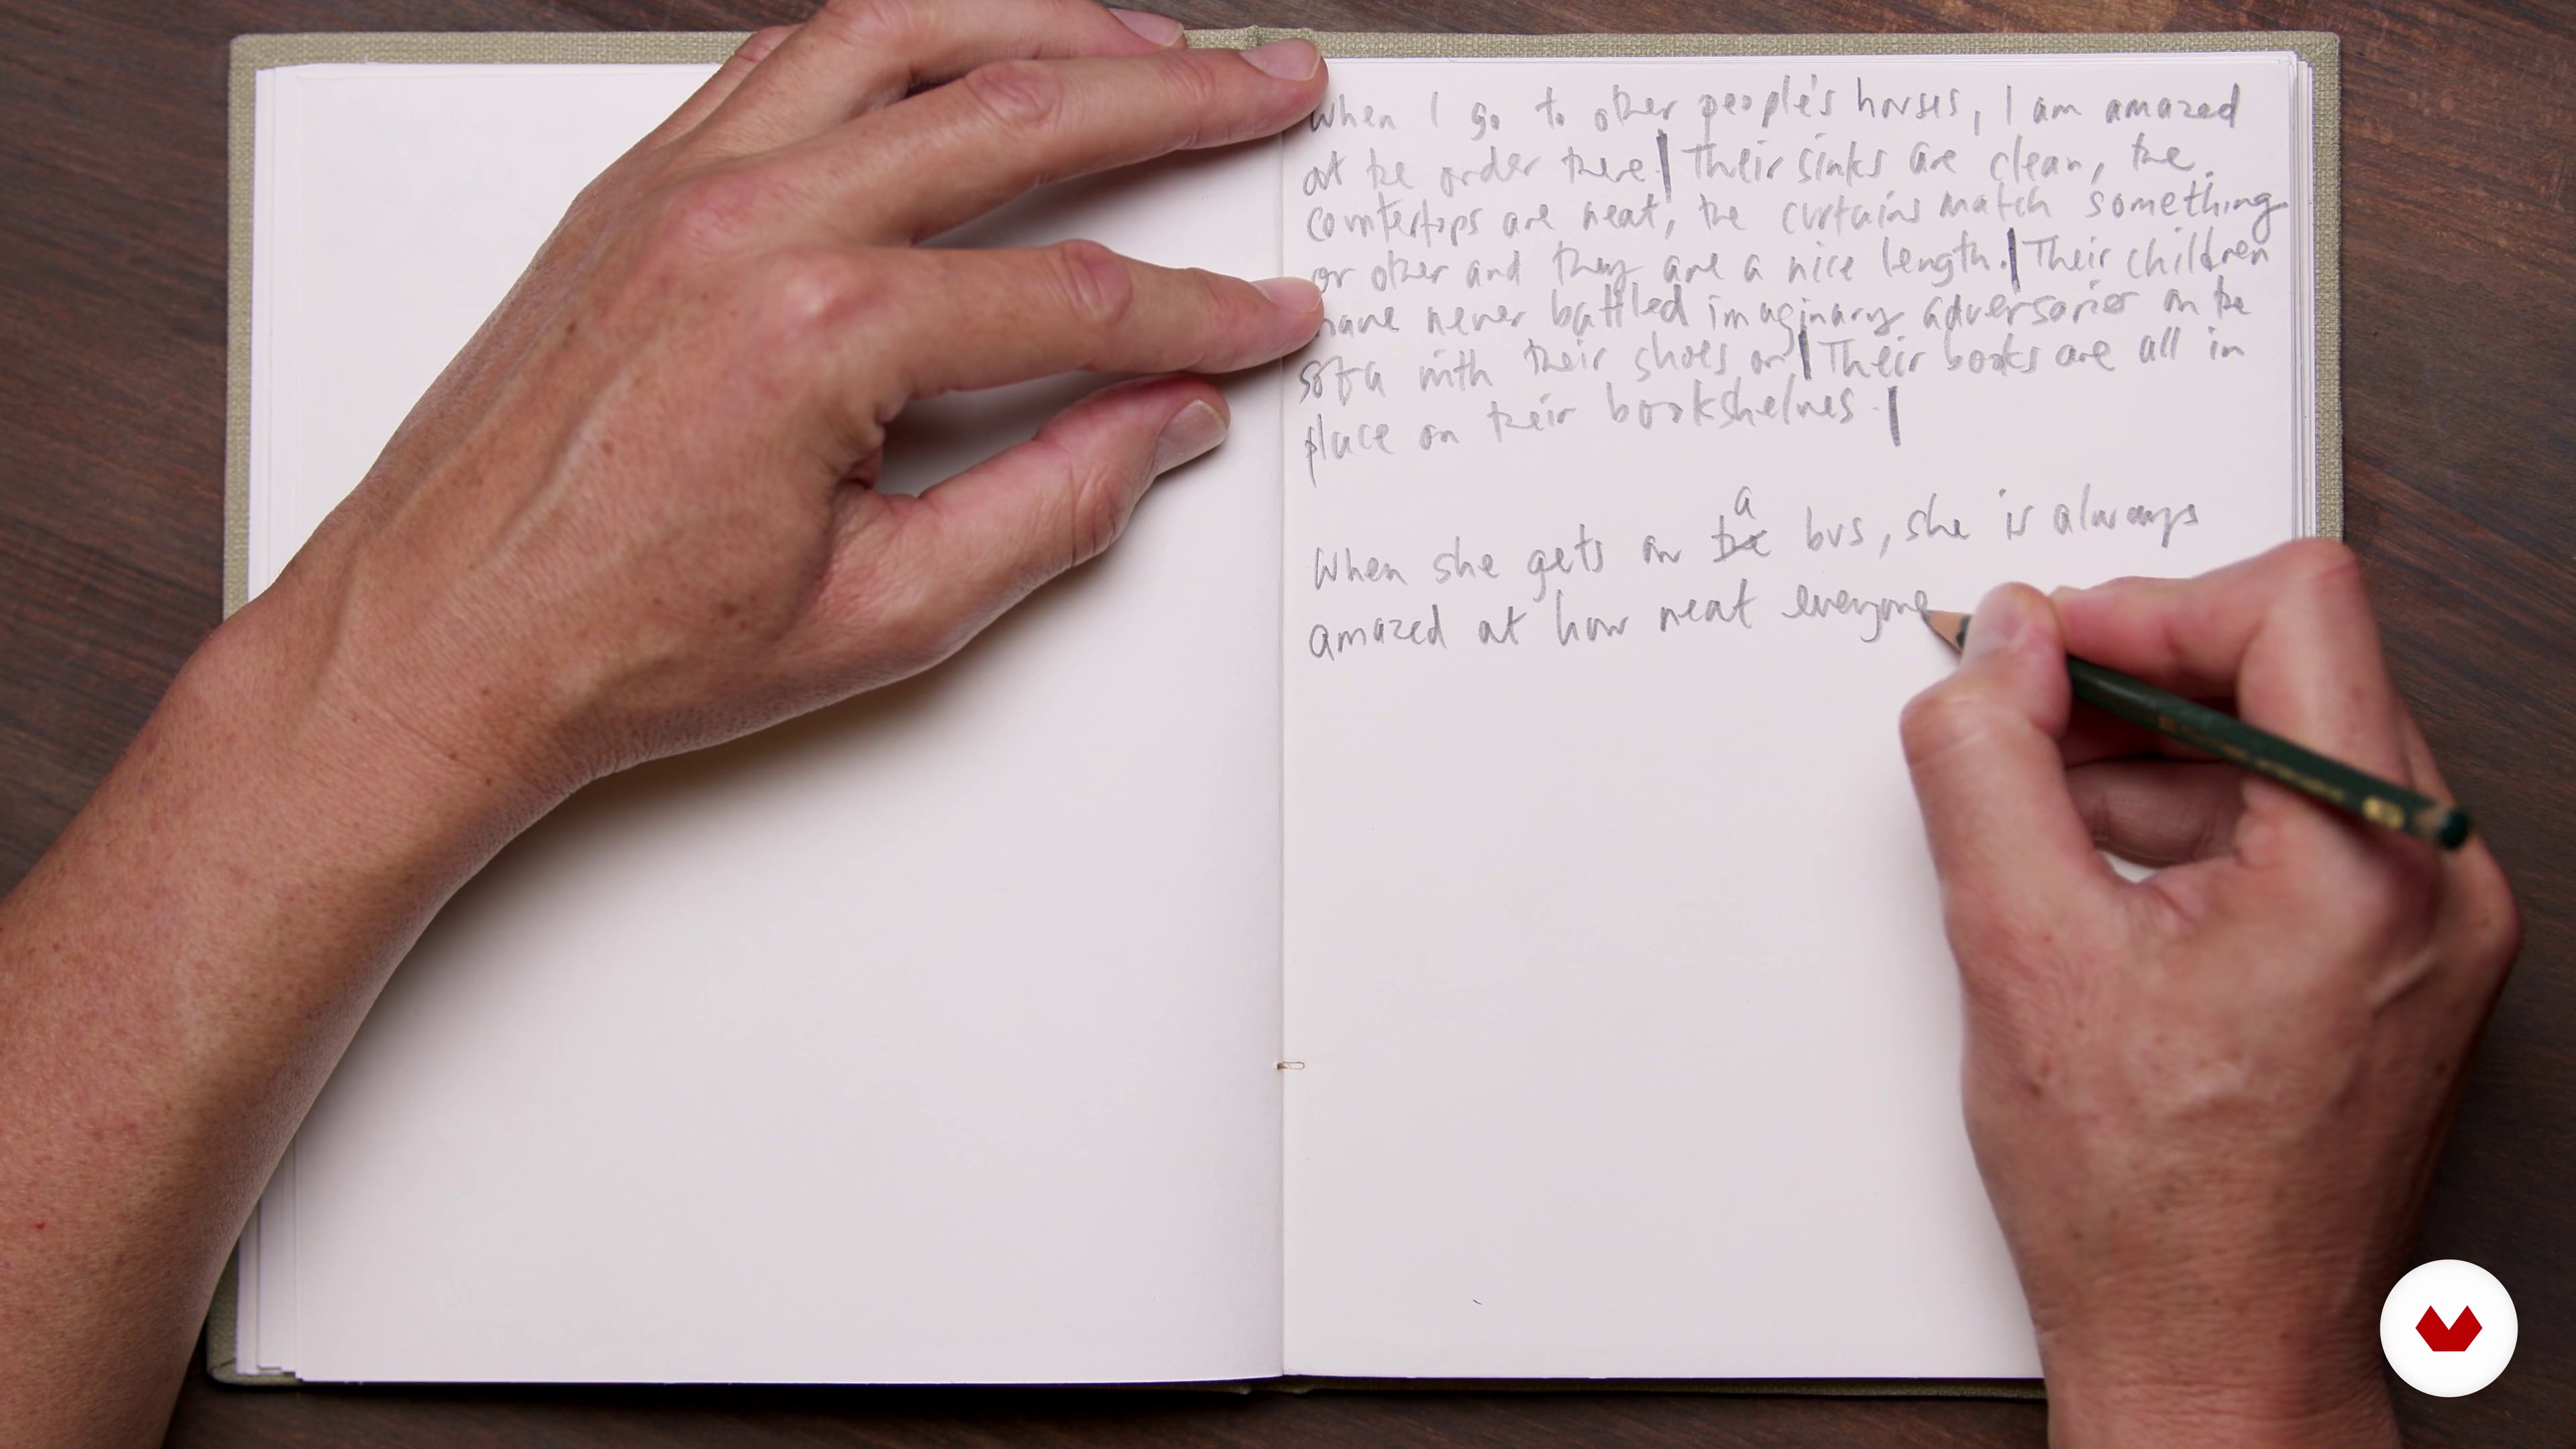 When I go to other people's houses, I am amazed
at the order there.| Their sinks are clean, the
countertops are neat, the curtains match something
or other and they are a nice length.| Their children
have never battled imaginary adversaries on the
sofa with their shoes on| Their books are all in
place on their bookshelves.|
a
When she gets on the bus, she is always
amazed at how neat everyone